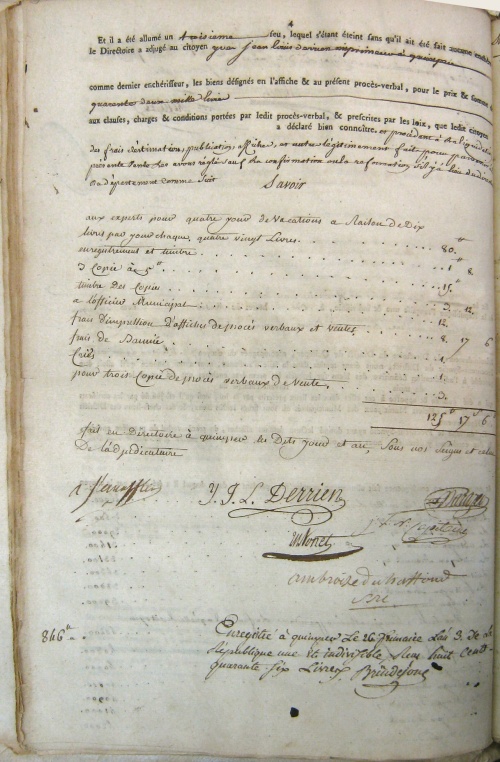 4
Et il a été allumé un troisieme feu, lequel s'étant éteint sans qu'il ait été fait aucune enchère
le Directoire a adjugé au citoyen yves jean louis derrien imprimeur à quimper
comme dernier enchérisseur, les biens désignés en l'affiche & au présent procès-verbal, pour le prix & somme
quarante deux mille livre
aux clauses, charges & conditions portées par ledit procès-verbal, & prescrites par les loix, que ledit citoyen
a déclaré bien connoître. et procédent à la
des frais d'estimation, publication, affiches, et autres légitimement faits pour parvenir à la
présente vente les avons réglés sauf la confirmation ou la reformation s'il y a lieu du
du département comme suit
Savoir
aux experts pour quatre jour de vacations a Raison de Dix
livres par jour chaque, quatre vingt Livres . . . 80.#
enregistrement et timbre . . . 1# 8.
3 Copie à 5# . . . 15.#
timbre Des Copies . . . 3. 12.
a l'officier Municipal . . . 12.
frais D'impression D'affiches de procès verbaux et ventes. . . 8. 17 6
frais de Bannie . . . 1.
Criés . . . 1.
pour trois Copie de procès verbaux de Vente . . . 3.
125# 17 6
fait en Directoire à quimper les Dits jour et an, Sous nos Seigns et celui
De l'adjudicataire
Y. J. L. Derrien
ambroise du
846#
Enregistré à quimper Le 26 frimaire L'an 3. de La
République une et indivisible Reçu huit Cents
quarante Six Livres